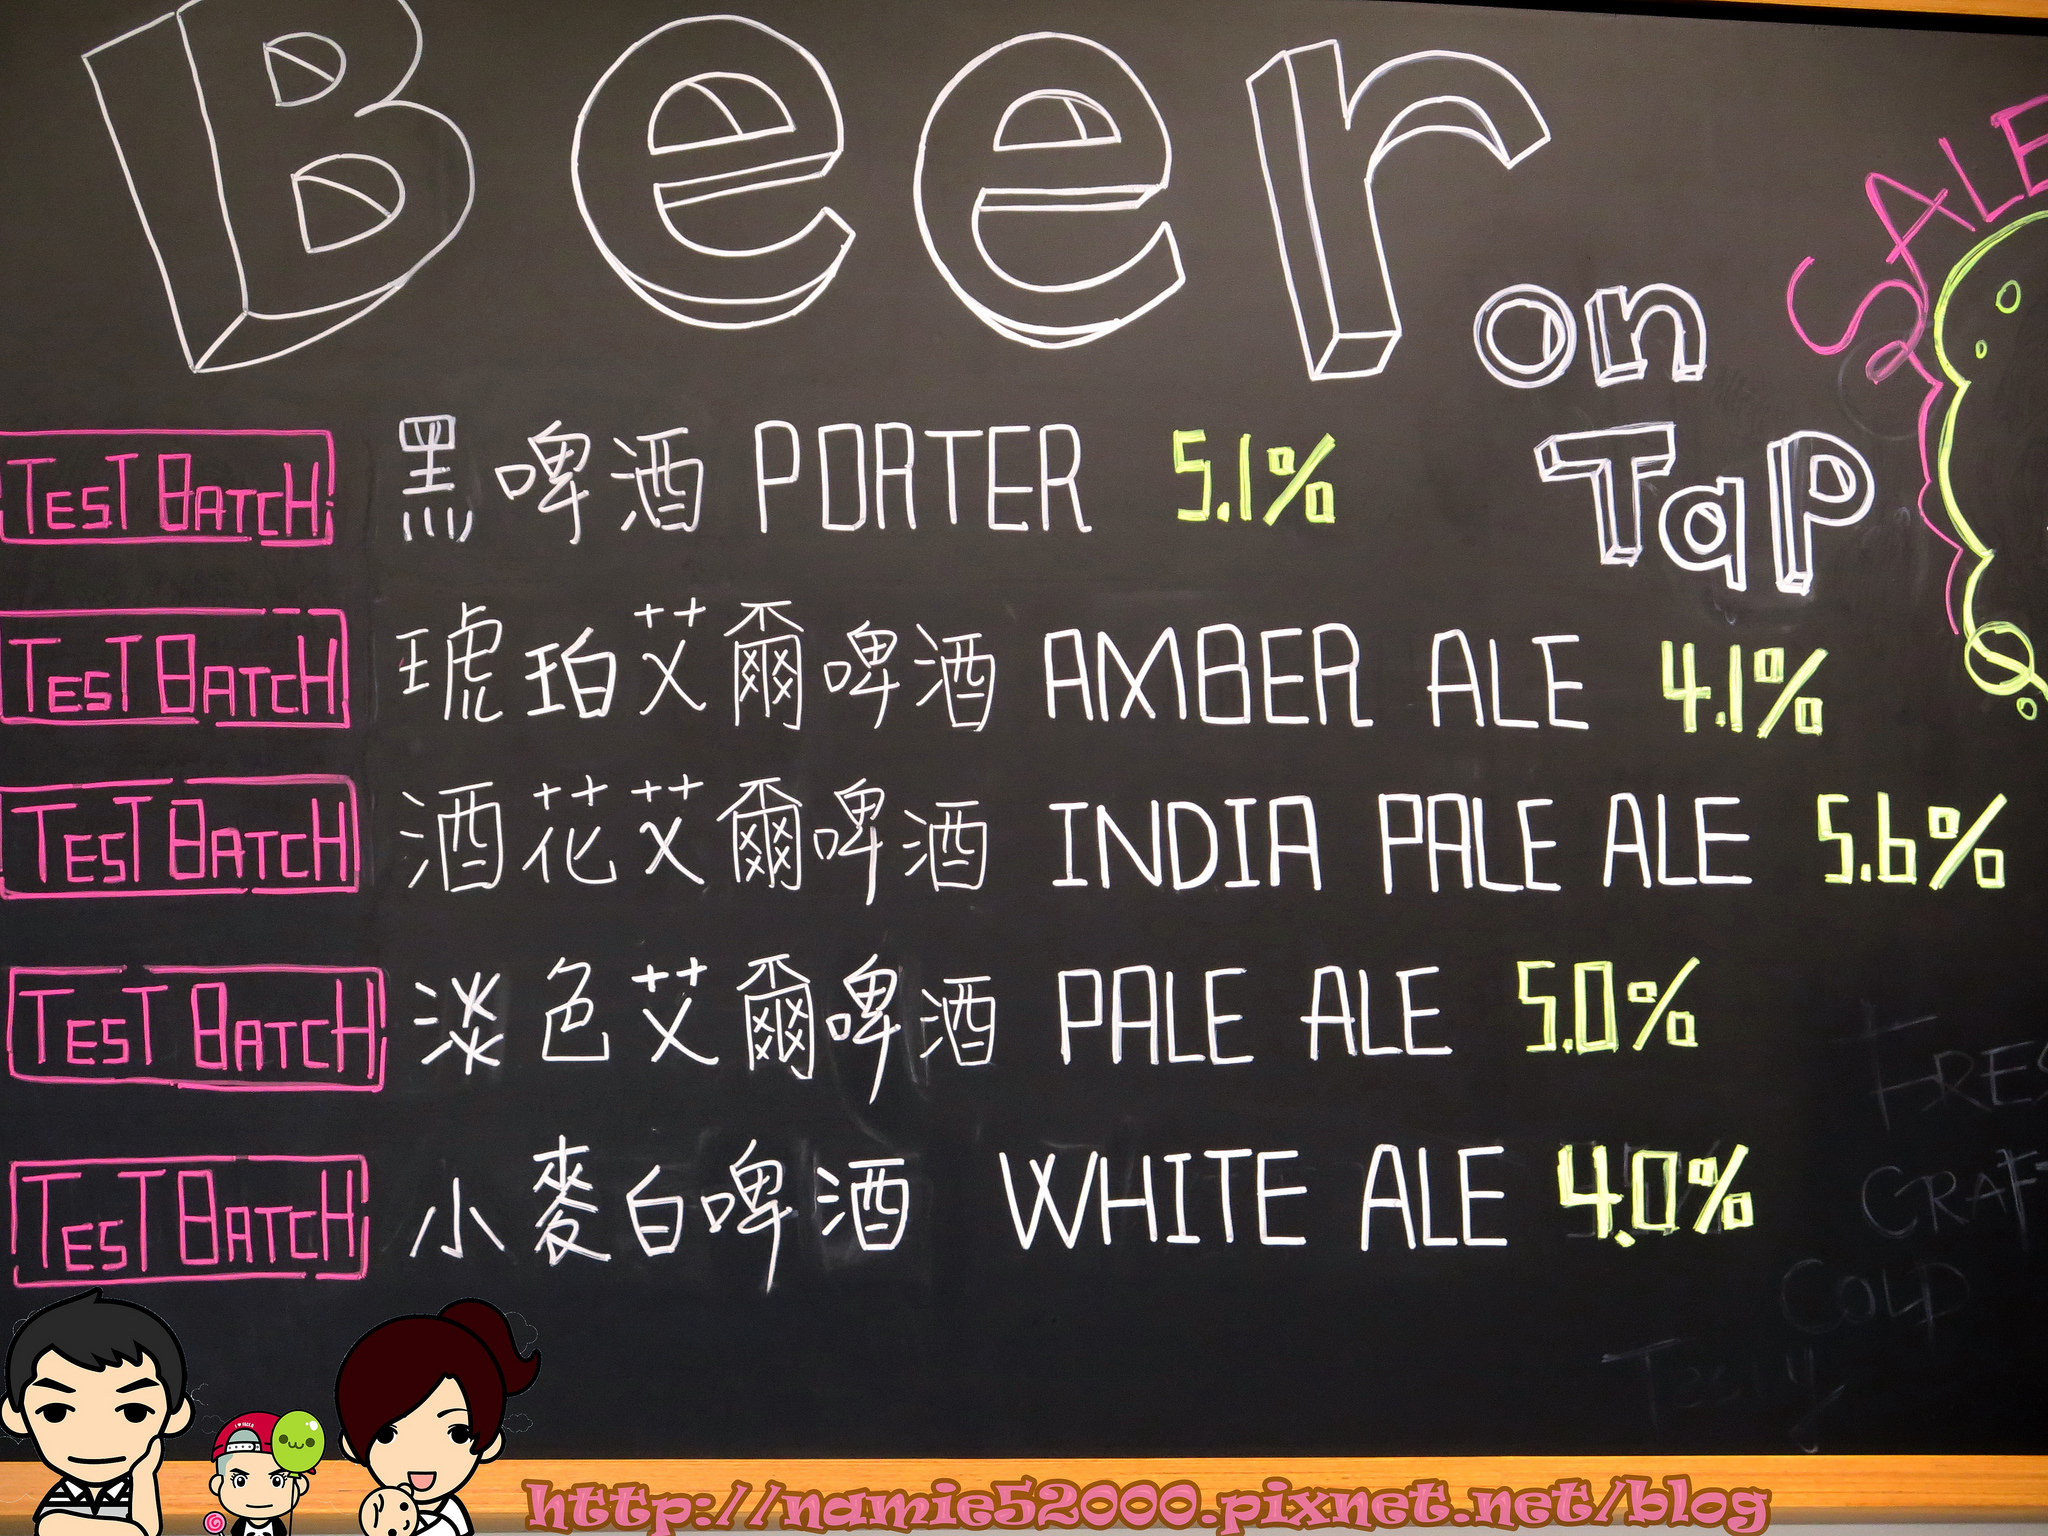 Beer
on
Tap
SALE
TEST BATCH 黑啤酒 PORTER 5.1%
TEST BATCH 琥珀艾爾啤酒 AMBER ALE 4.1%
TEST BATCH 酒花艾爾啤酒 INDIA PALE ALE 5.6%
TEST BATCH 淡色艾爾啤酒 PALE ALE 5.0%
TEST BATCH 小麥白啤酒 WHITE ALE 4.0%
COLD
http://namie52000.pixnet.net/blog